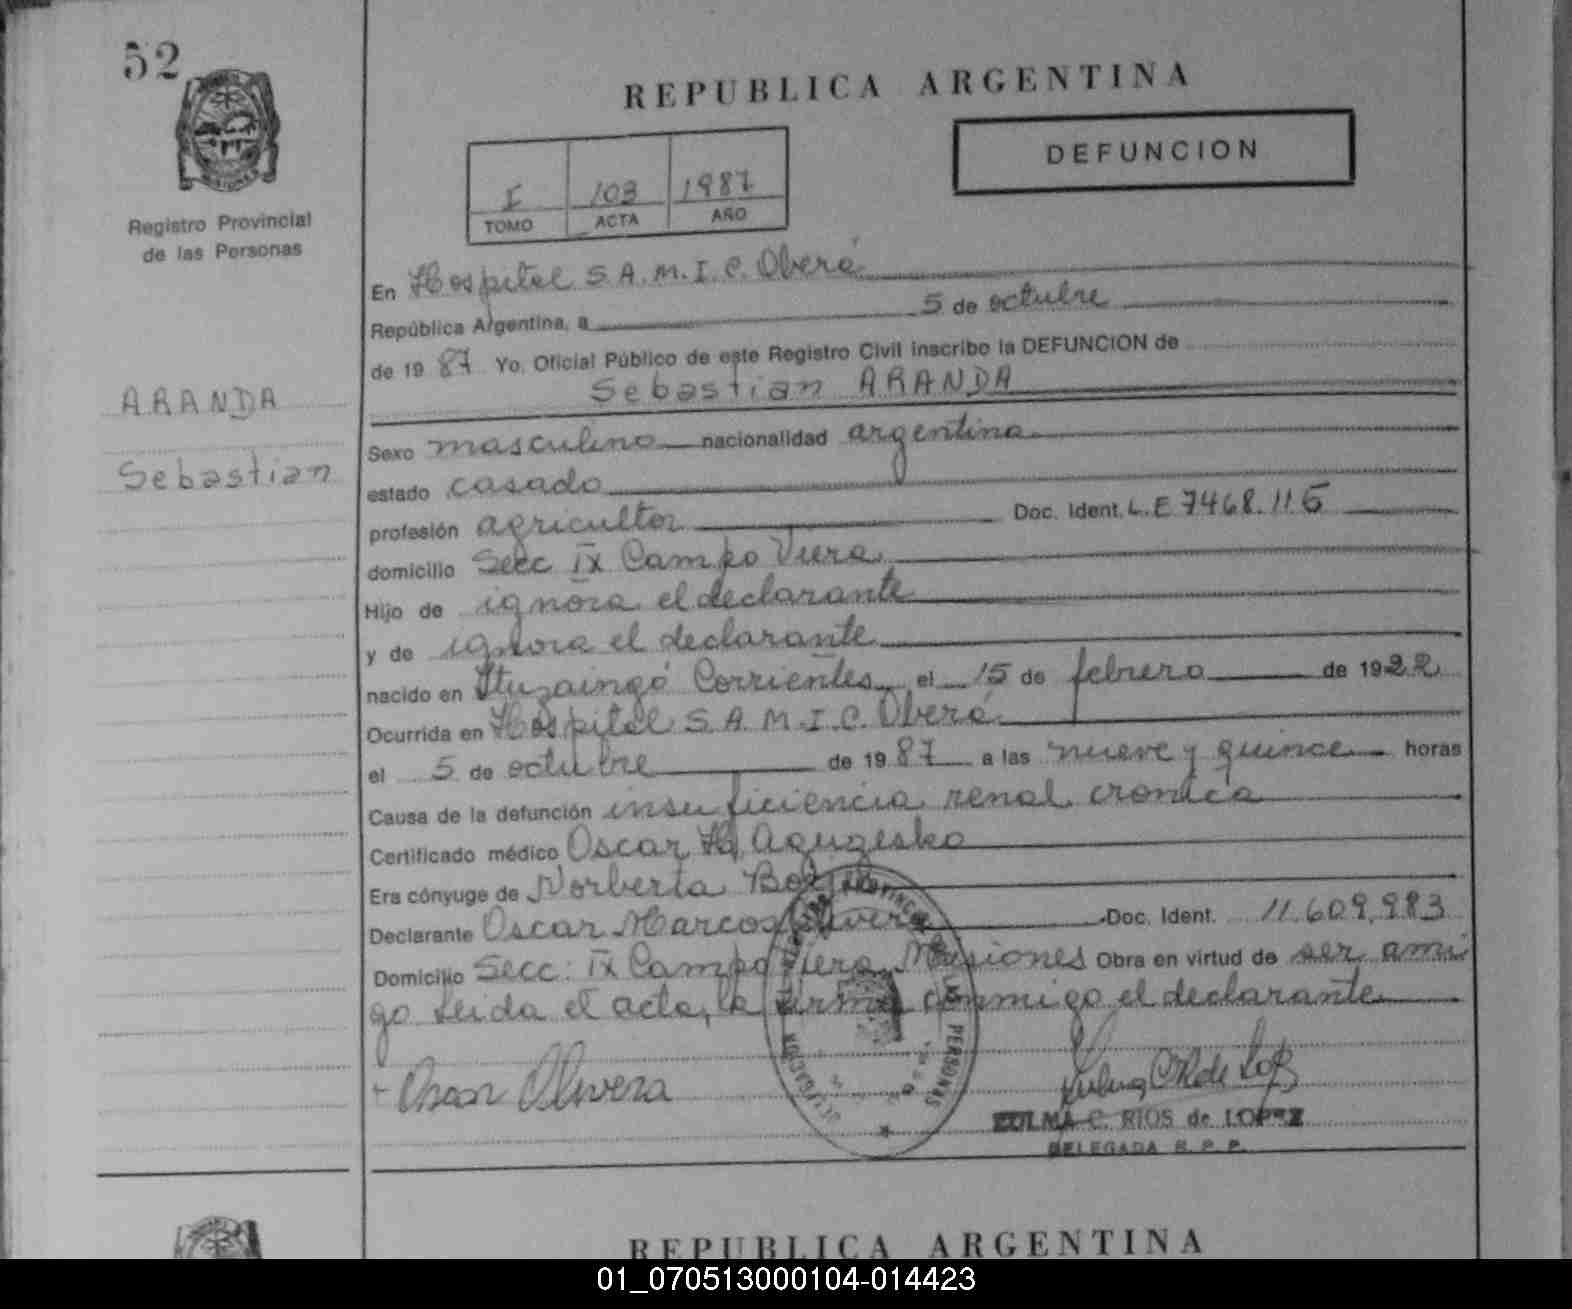 52
REPUBLICA ARGENTINA
DEFUNCION
I 103 1987
TOMO ACTA AÑO
Registro Provincial
de las Personas
ARANDA
Sebastian
En Hospital S.A.M.I.C. Oberá
República Argentina, a 5 de octubre
de 1987 Yo, Oficial Público de este Registro Civil inscribo la DEFUNCION de
Sebastian ARANDA
Sexo masculino nacionalidad argentina
estado casado
profesión agricultor Doc. Ident. L.E 7468.116
domicilio Secc IX Campo Viera
Hijo de ignora el declarante
y de ignora el declarante
nacido en Ituzaingó Corrientes el 15 de febrero de 1922
Ocurrida en Hospital S.A.M.I.C. Oberá
el 5 de octubre de 1987 a las nueve y quince horas
Causa de la defunción insuficiencia renal cronica
Certificado médico Oscar H.
Era cónyuge de Norberta
Declarante Oscar Marcos Olivera Doc. Ident. 11.609.983
Domicilio Secc: IX Campo Viera Misiones Obra en virtud de ser ami
go leida el acta, la firma conmigo el declarante
Oscar Olivera
ZULMA C. RIOS de LOPEZ
DELEGADA R. P. P.
REPUBLICA ARGENTINA
01_070513000104-014423